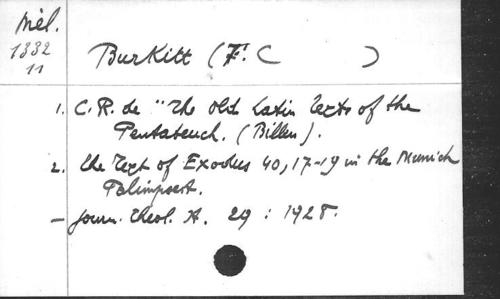 Mél.
1332
11
Burkitt (F. C )
1. C. R. de "The Old Latin Texts of the
Pentateuch. (Billen).
2. The Text of Exodus 40, 17-19 in the Munich
Palimpsest.
- Journ. Theol. 29 : 1928.